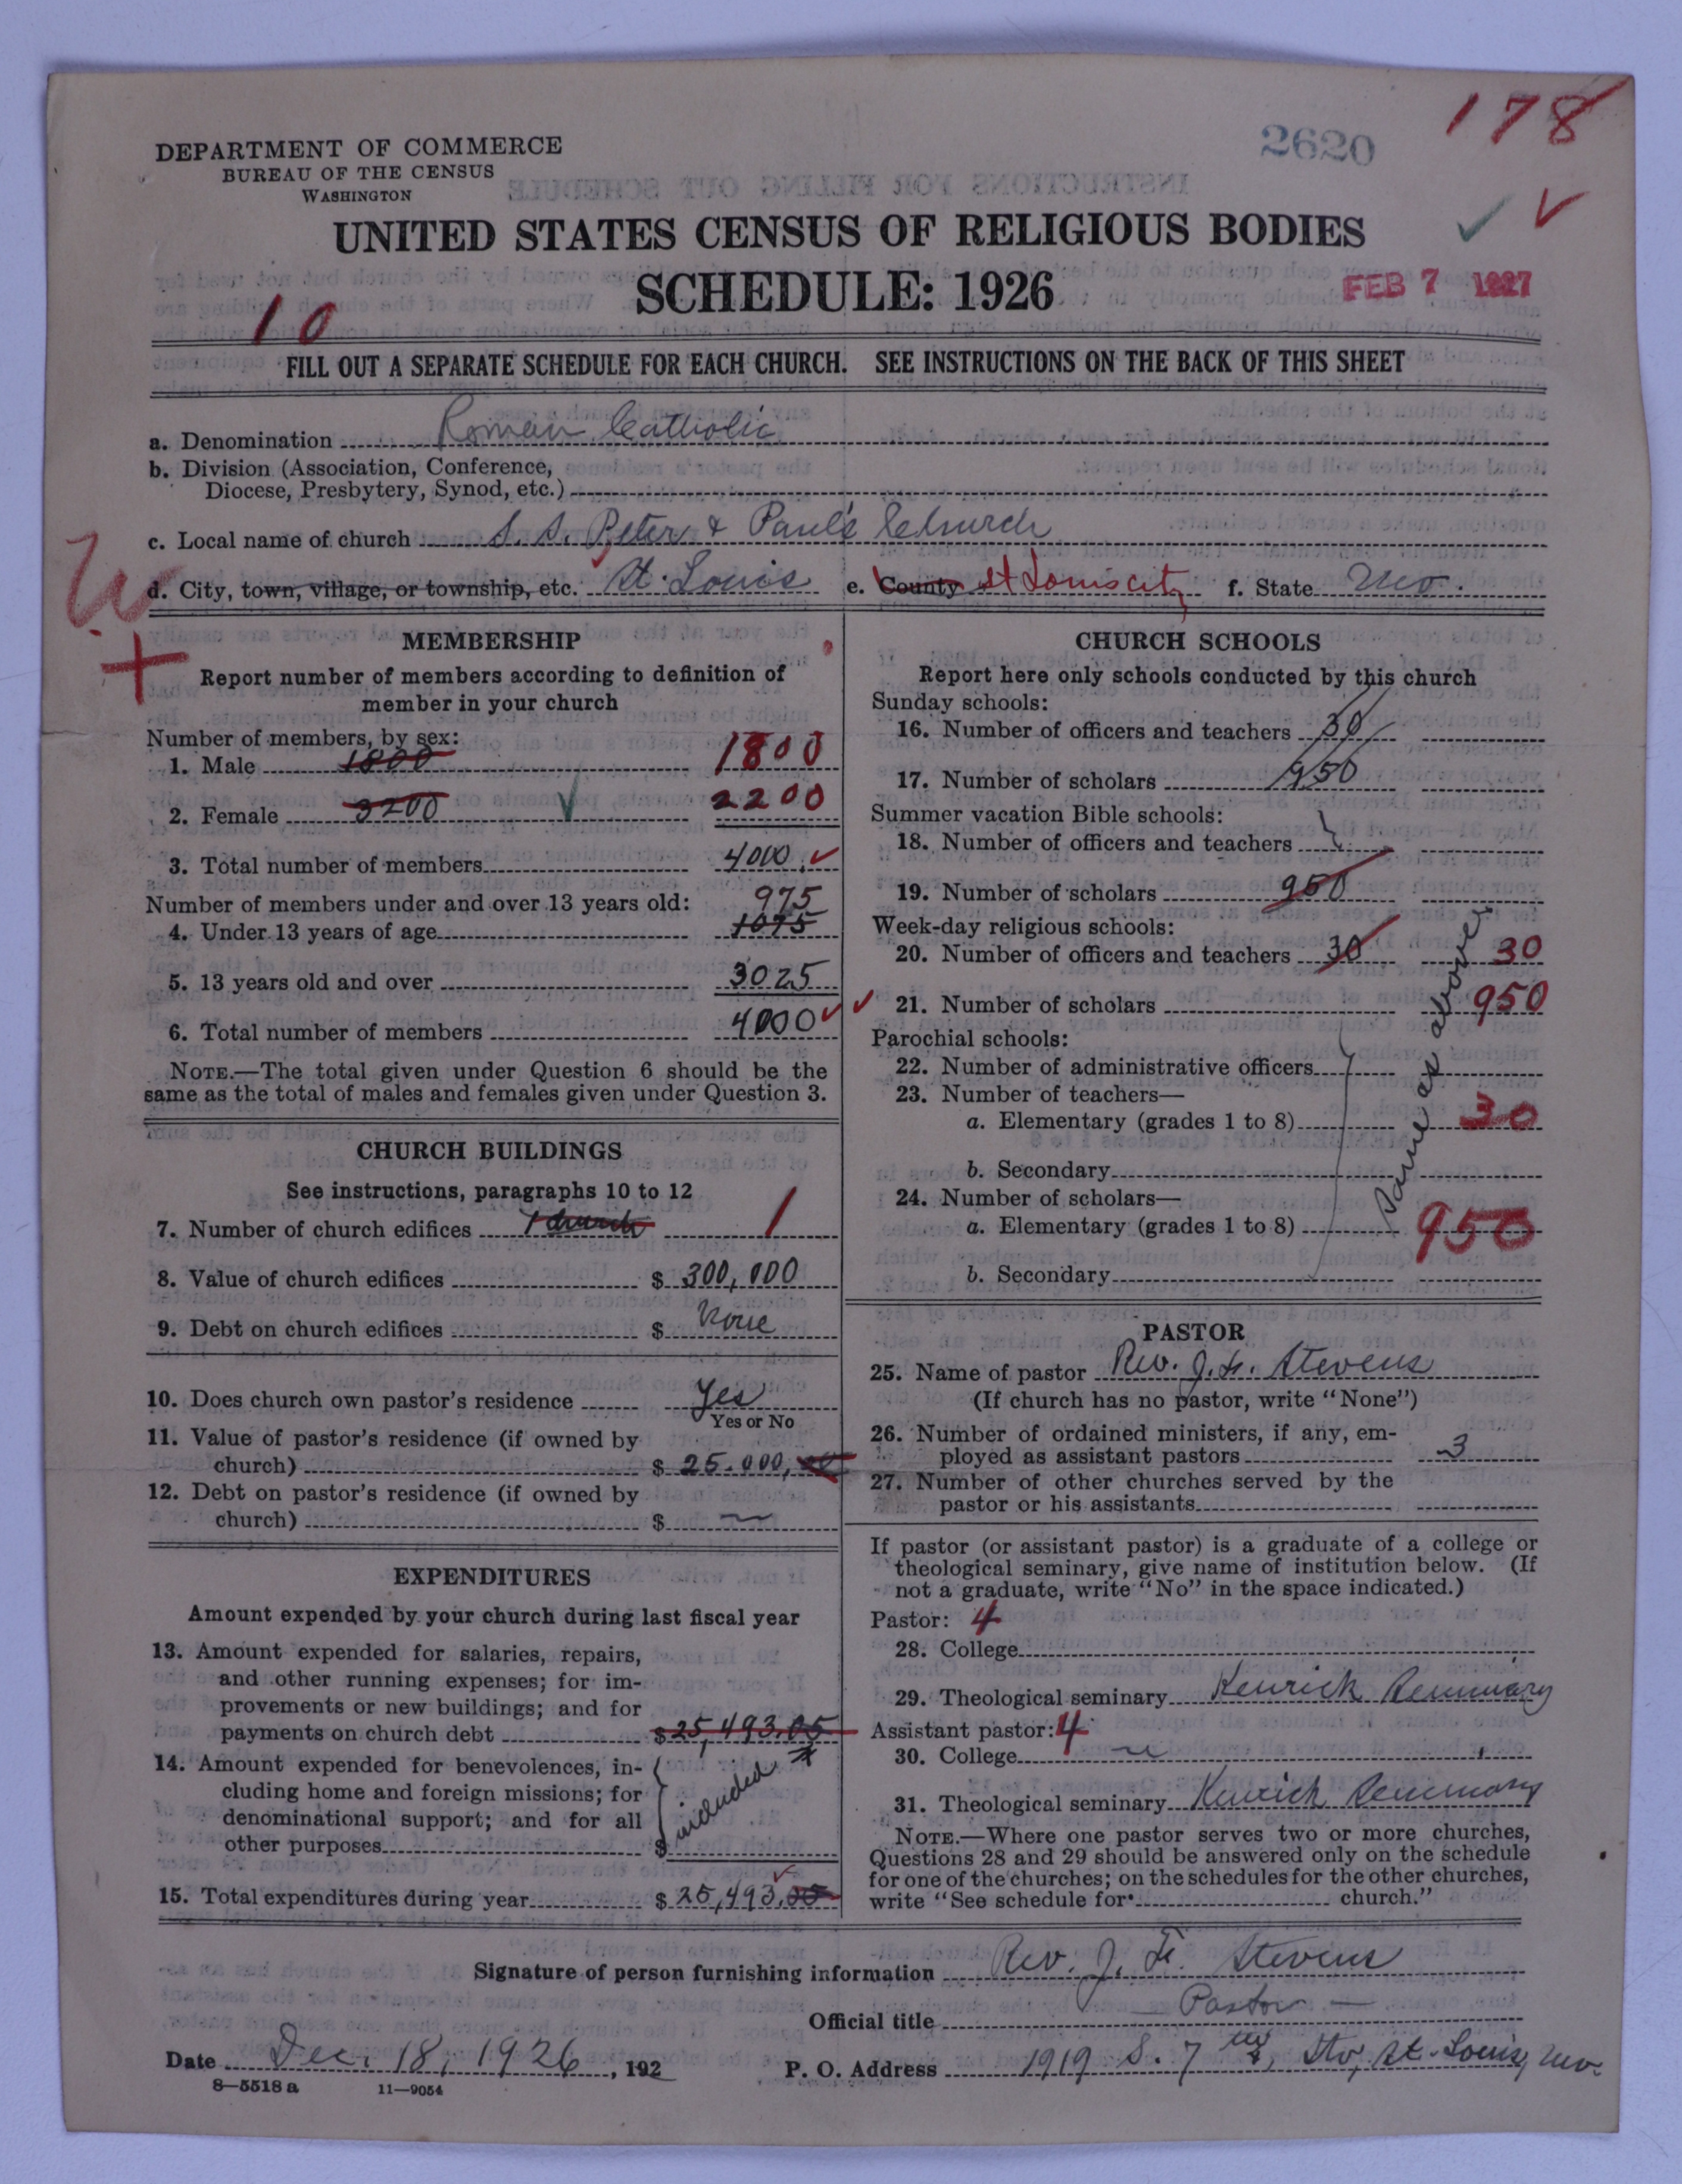 178
2620
DEPARTMENT OF COMMERCE
BUREAU OF THE CENSUS
WASHINGTON
UNITED STATES CENSUS OF RELIGIOUS BODIES
SCHEDULE: 1926
FEB 7 1927
10
FILL OUT A SEPARATE SCHEDULE FOR EACH CHURCH. SEE INSTRUCTIONS ON THE BACK OF THIS SHEET
a. Denomination Roman Catholic
b. Division (Association, Conference,
Diocese, Presbytery, Synod, etc.)
c. Local name of church S.S. Peter & Paul's Church
d. City, town, village, or township, etc. St. Louis e. County St Louis city f. State Mo.
MEMBERSHIP
Report number of members according to definition of
member in your church
Number of members, by sex:
1. Male 1800 1800
2. Female 3200 2200
3. Total number of members 4000
Number of members under and over 13 years old: 975
4. Under 13 years of age 1075
5. 13 years old and over 3025
6. Total number of members 4000
NOTE.—The total given under Question 6 should be the
same as the total of males and females given under Question 3.
CHURCH BUILDINGS
See instructions, paragraphs 10 to 12
7. Number of church edifices 1 church 1
8. Value of church edifices $ 300,000
9. Debt on church edifices $ None
10. Does church own pastor's residence Yes
Yes or No
11. Value of pastor's residence (if owned by
church) $ 25.000,
12. Debt on pastor's residence (if owned by
church) $ —
EXPENDITURES
Amount expended by your church during last fiscal year
13. Amount expended for salaries, repairs,
and other running expenses; for im-
provements or new buildings; and for
payments on church debt $ 25,493.05
14. Amount expended for benevolences, in-
cluding home and foreign missions; for
denominational support; and for all
other purposes $ included
15. Total expenditures during year $ 25,493.05
CHURCH SCHOOLS
Report here only schools conducted by this church
Sunday schools:
16. Number of officers and teachers 30
17. Number of scholars 950
Summer vacation Bible schools:
18. Number of officers and teachers
19. Number of scholars 950
Week-day religious schools:
20. Number of officers and teachers 30 30
21. Number of scholars 950
Parochial schools:
22. Number of administrative officers
Same as above
23. Number of teachers—
a. Elementary (grades 1 to 8) 30
b. Secondary
24. Number of scholars—
a. Elementary (grades 1 to 8) 950
b. Secondary
PASTOR
25. Name of pastor Rev. J. F. Stevens
(If church has no pastor, write "None")
26. Number of ordained ministers, if any, em-
ployed as assistant pastors 3
27. Number of other churches served by the
pastor or his assistants
If pastor (or assistant pastor) is a graduate of a college or
theological seminary, give name of institution below. (If
not a graduate, write "No" in the space indicated.)
Pastor: 4
28. College
29. Theological seminary Kenrick Seminary
Assistant pastor: 4
30. College
31. Theological seminary Kenrick Seminary
NOTE.—Where one pastor serves two or more churches,
Questions 28 and 29 should be answered only on the schedule
for one of the churches; on the schedules for the other churches,
write "See schedule for church."
Signature of person furnishing information Rev. J. F. Stevens
Official title Pastor
Date Dec. 18, 1926, 192 P. O. Address 1919 S. 7th St., St. Louis, Mo.
8—5518 a 11—9054